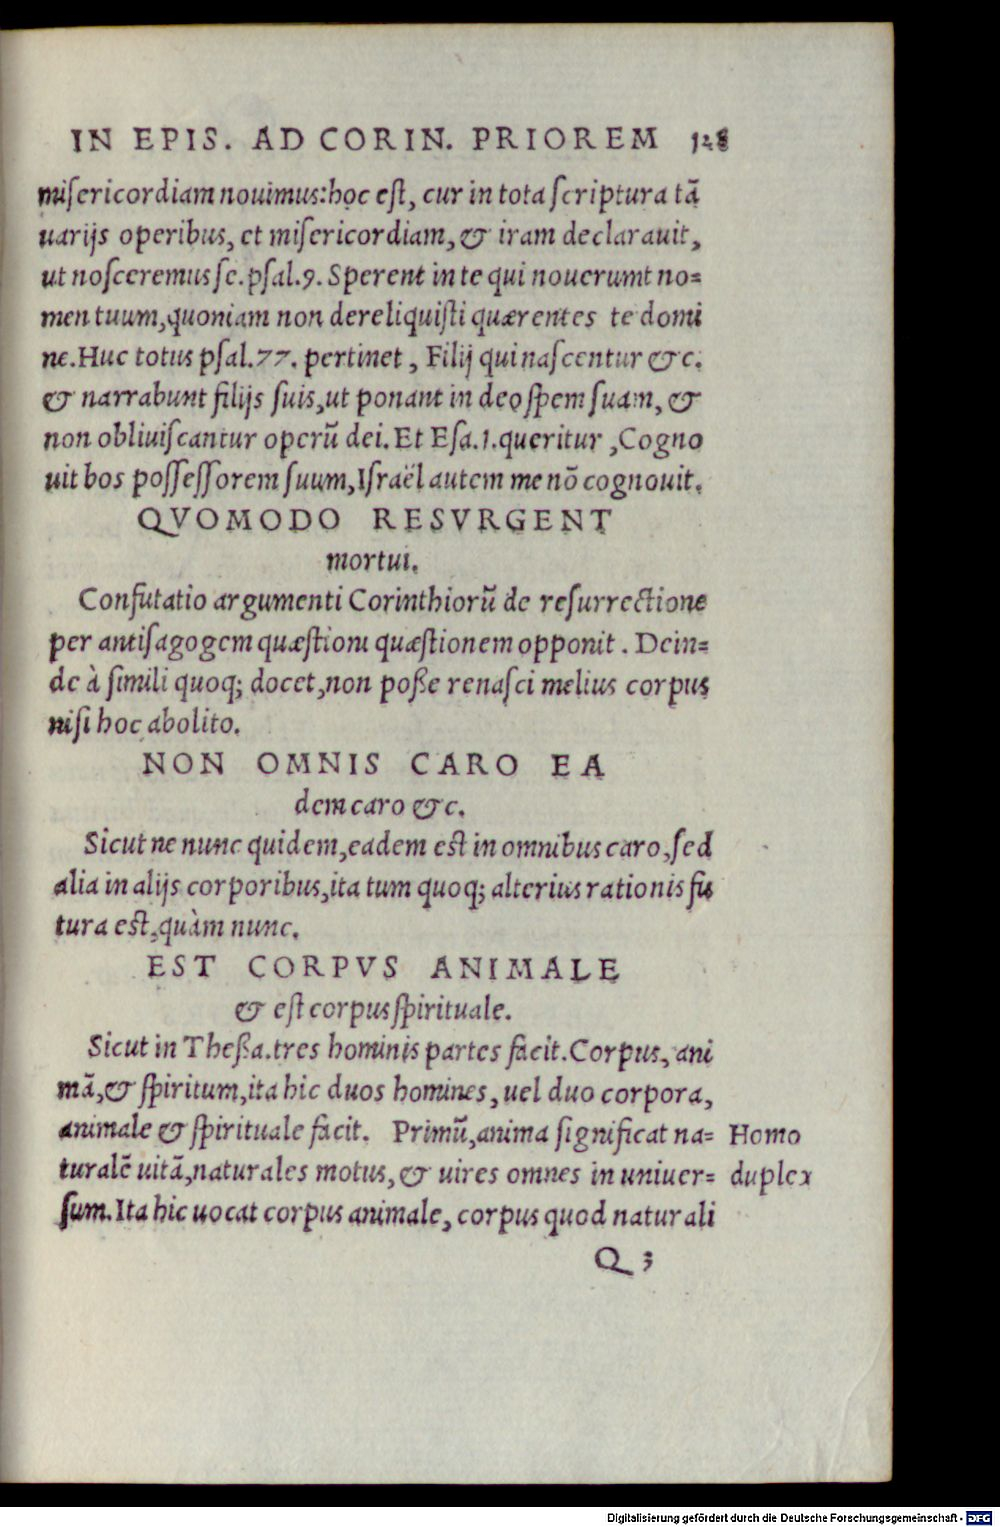 IN EPIS. AD CORIN. PRIOREM 128
miſericordiam nouimus: hoc eſt, cur in tota ſcriptura tā
uarijs operibus, et miſericordiam, & iram declarauit,
ut noſceremus ſe. pſal. 9. Sperent in te qui nouerumt no=
men tuum, quoniam non dereliquiſti quærentes te domi
ne. Huc totus pſal. 77. pertinet, Filij qui naſcentur &c.
& narrabunt filijs ſuis, ut ponant in deo ſpem ſuam, &
non obliuiſcantur operū dei. Et Eſa. 1. queritur, Cogno
uit bos poſſeſſorem ſuum, Iſraël autem me nō cognouit.
QVOMODO RESVRGENT
mortui.
Confutatio argumenti Corinthiorū de reſurrectione
per antiſagogem quæſtioni quæſtionem opponit. Dein=
de à ſimili quoq; docet, non poße renaſci melius corpus
niſi hoc abolito.
NON OMNIS CARO EA
dem caro &c.
Sicut ne nunc quidem, eadem eſt in omnibus caro, ſed
alia in alijs corporibus, ita tum quoq; alterius rationis fu
tura eſt, quàm nunc.
EST CORPVS ANIMALE
& eſt corpus ſpirituale.
Sicut in Theßa. tres hominis partes facit. Corpus, ani
mā, & ſpiritum, ita hic duos homines, uel duo corpora,
animale & ſpirituale facit. Primū, anima ſignificat na= Homo
turalē uitā, naturales motus, & uires omnes in uniuer= duplex
ſum. Ita hic uocat corpus animale, corpus quod naturali
Q 3
Digitalisierung gefördert durch die Deutsche Forschungsgemeinschaft - DFG